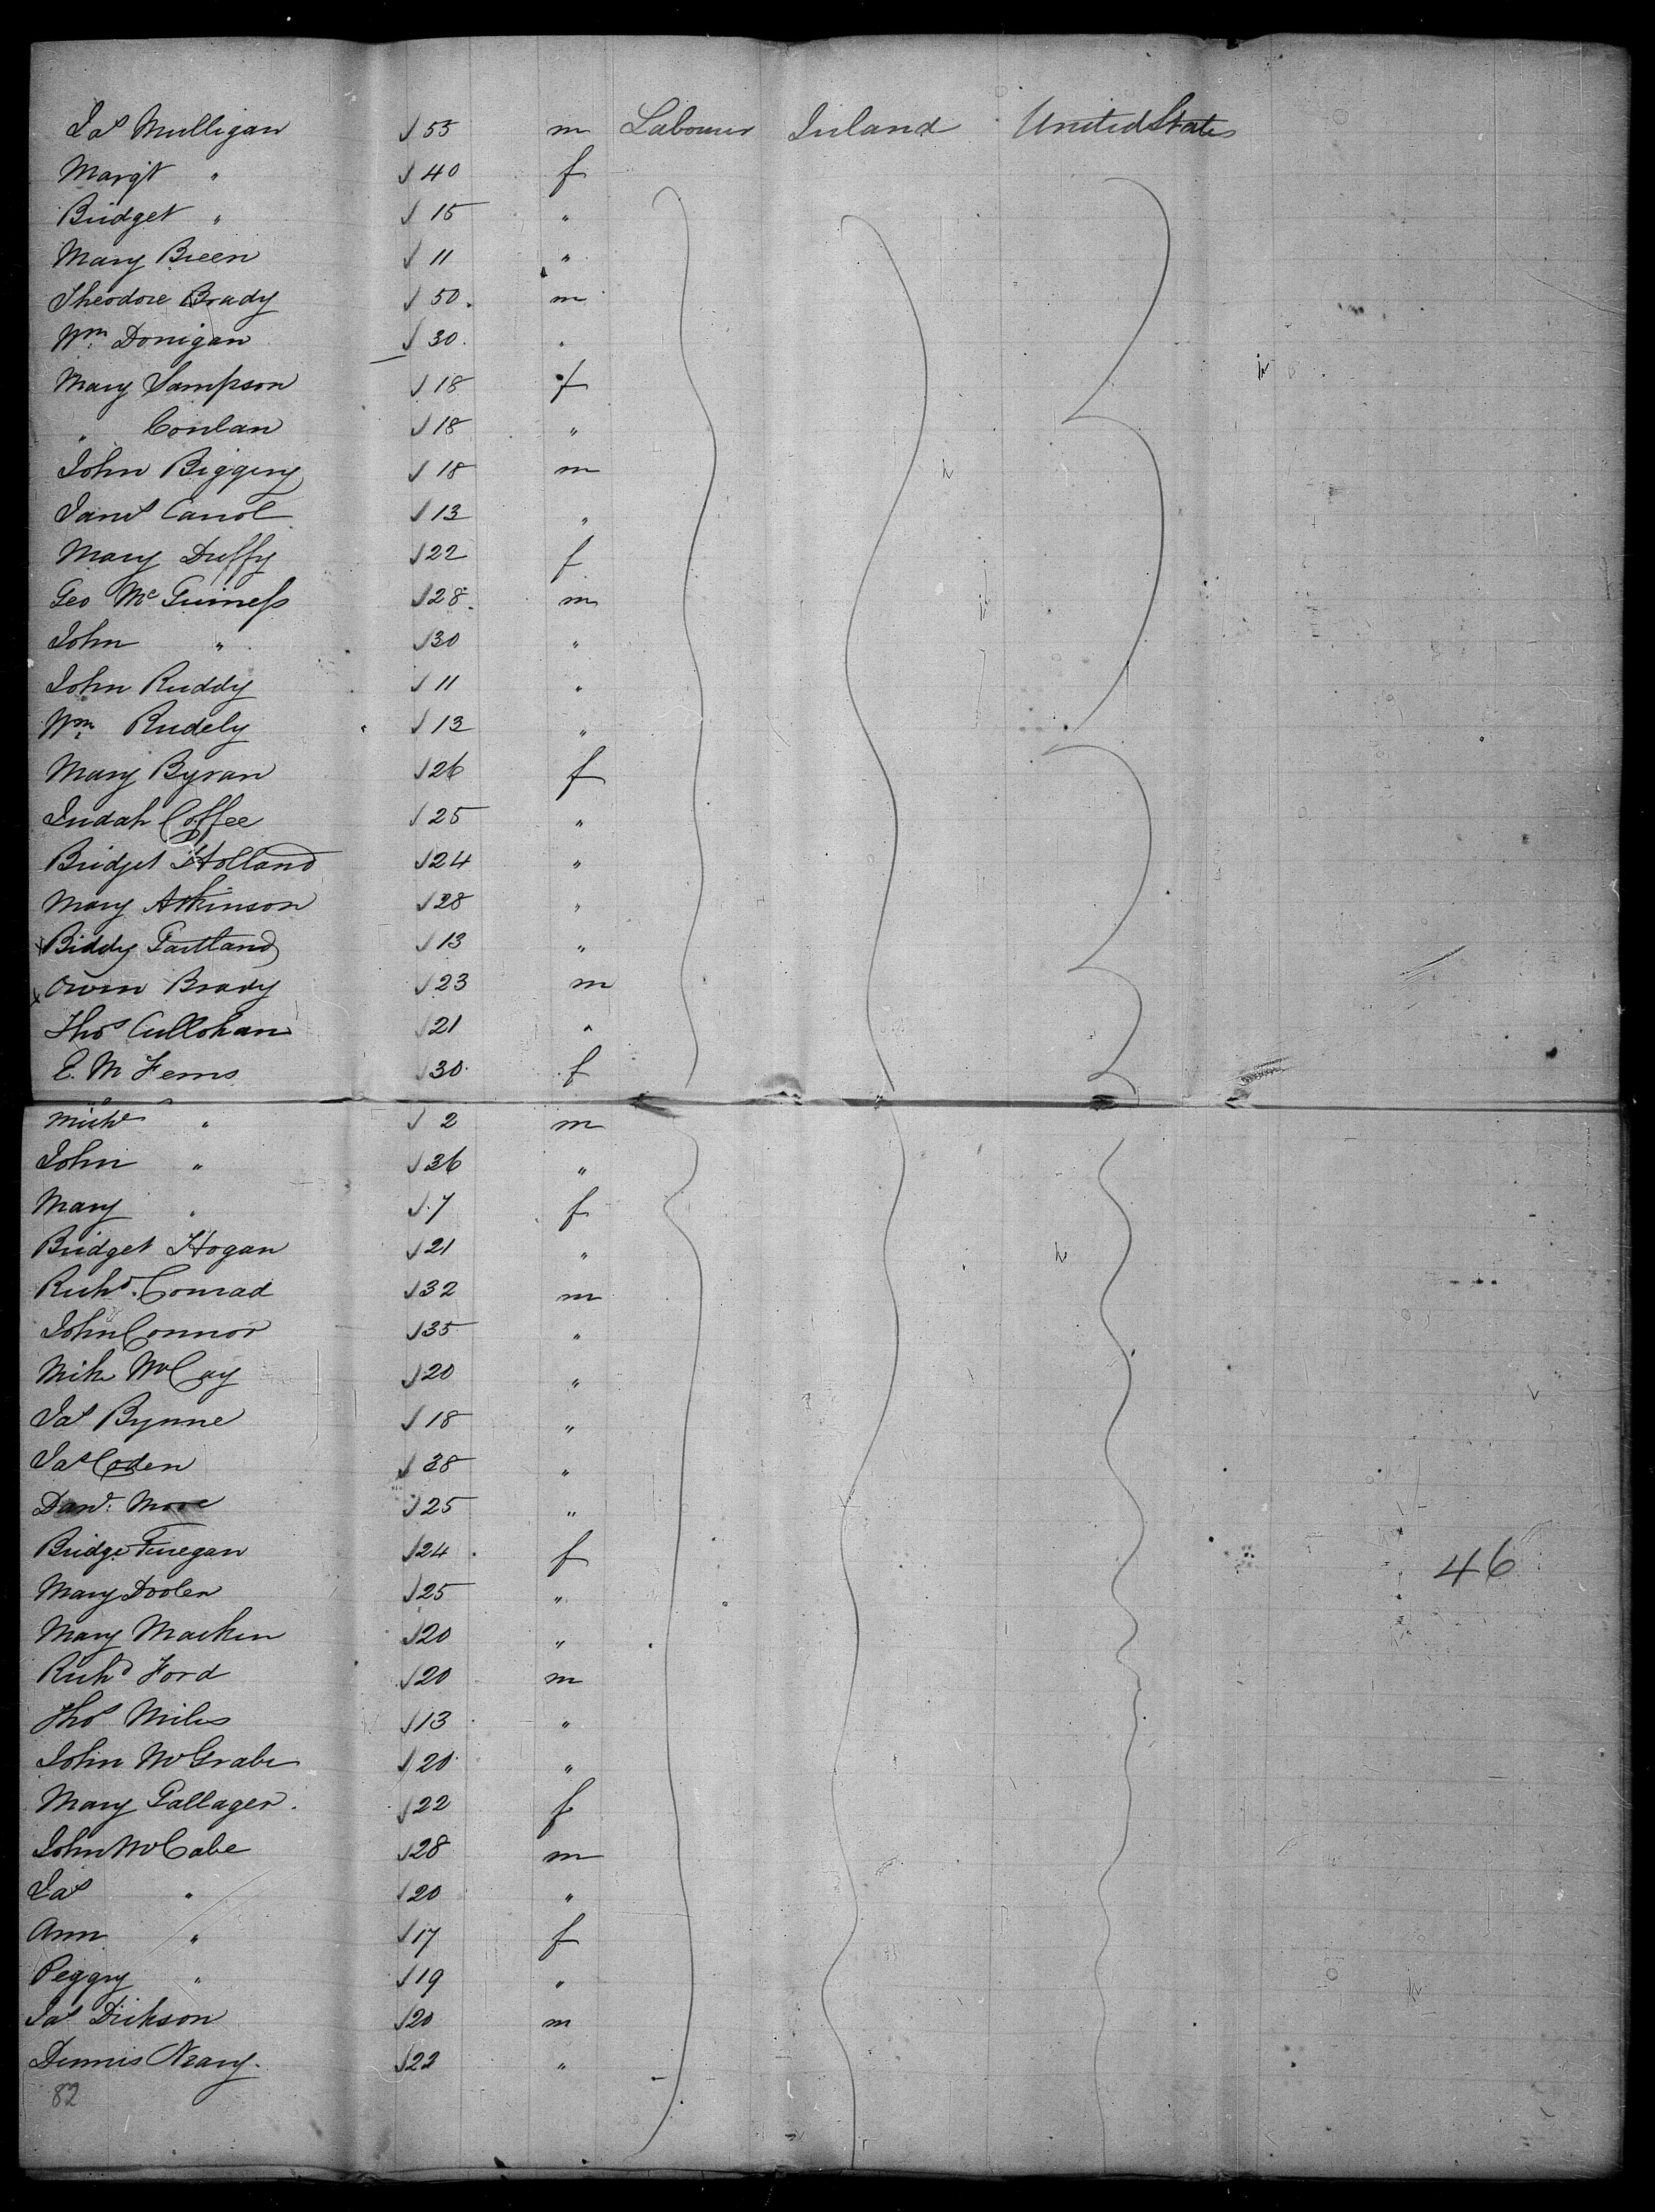 Jas Mulligan 55 m Labourer Ireland United States
Margt " 40 f
Bridget " 15 "
Mary Breen 11 "
Theodore Brady 50 m
Wm Donigan 30 "
Mary Sampson 18 f
" Conlan 18 "
John Biggins 18 m
James Carrol 13 "
Mary Duffy 22 f
Geo McGuiness 28 m
John " 30 "
John Ruddy 11 "
Wm Rudely 13 "
Mary Byran 26 f
Judah Coffee 25 "
Bridget Holland 24 "
Mary Atkinson 28 "
Biddy Partland 13 "
Owen Brady 23 m
Thos Cullohan 21 "
E. M Ferns 30 f
Michl " 2 m
John " 36 "
Mary " 7 f
Bridget Hogan 21 "
Richd. Conrad 32 m
John Connor 35 "
Mike McCay 20 "
Jas Bynne 18 "
Jas Coden 38 "
Danl. Moore 25 "
Bridge Finegan 24 f
Mary Doolen 25 "
Mary Macken 20 "
Richd Ford 20 m
Thos Miles 13 "
John McGrabe 20 "
Mary Gallager. 22 f
John McCabe 28 m
Jas " 20 "
Ann " 17 f
Peggy " 19 "
Jas Dickson 20 m
Dennis Neary. 22 "
46
82